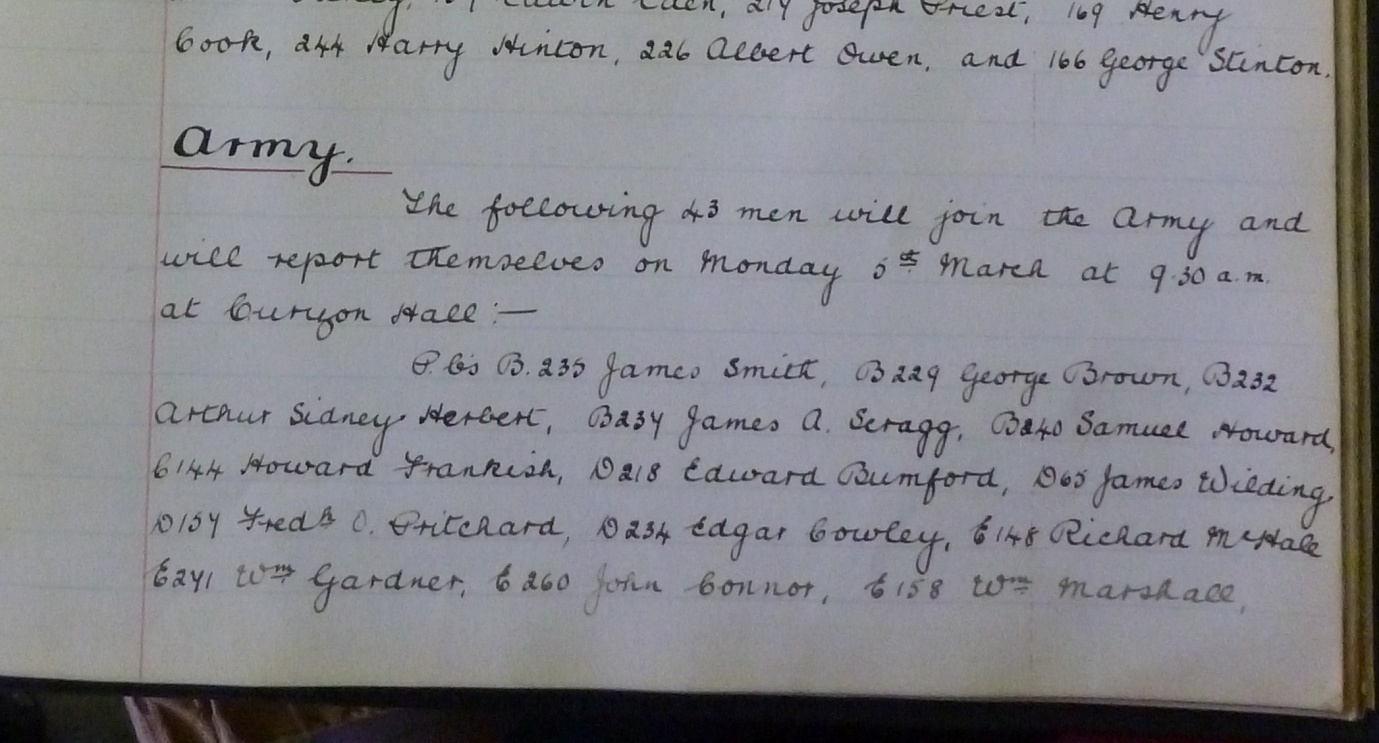 Edwin Eden, 219 Joseph Priest, 169 Henry
Cook, 244 Harry Hinton, 226 Albert Owen, and 166 George Stinton.
Army.
The following 43 men will join the Army and
will report themselves on Monday 5th March at 9.30 a.m.
at Curzon Hall :—
P.Cs B.235 James Smith, B229 George Brown, B232
Arthur Sidney Herbert, B237 James A. Scragg, B240 Samuel Howard,
C144 Howard Frankish, D218 Edward Bumford, D65 James Wilding,
D157 Fredk C. Pritchard, D234 Edgar Cowley, E148 Richard McHale
E271 Wm Gardner, E260 John Connor, E158 Wm Marshall,